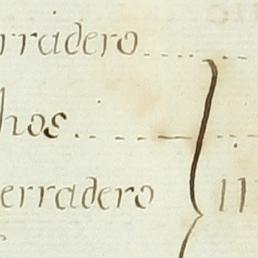 rradero
hos
erradero } 11